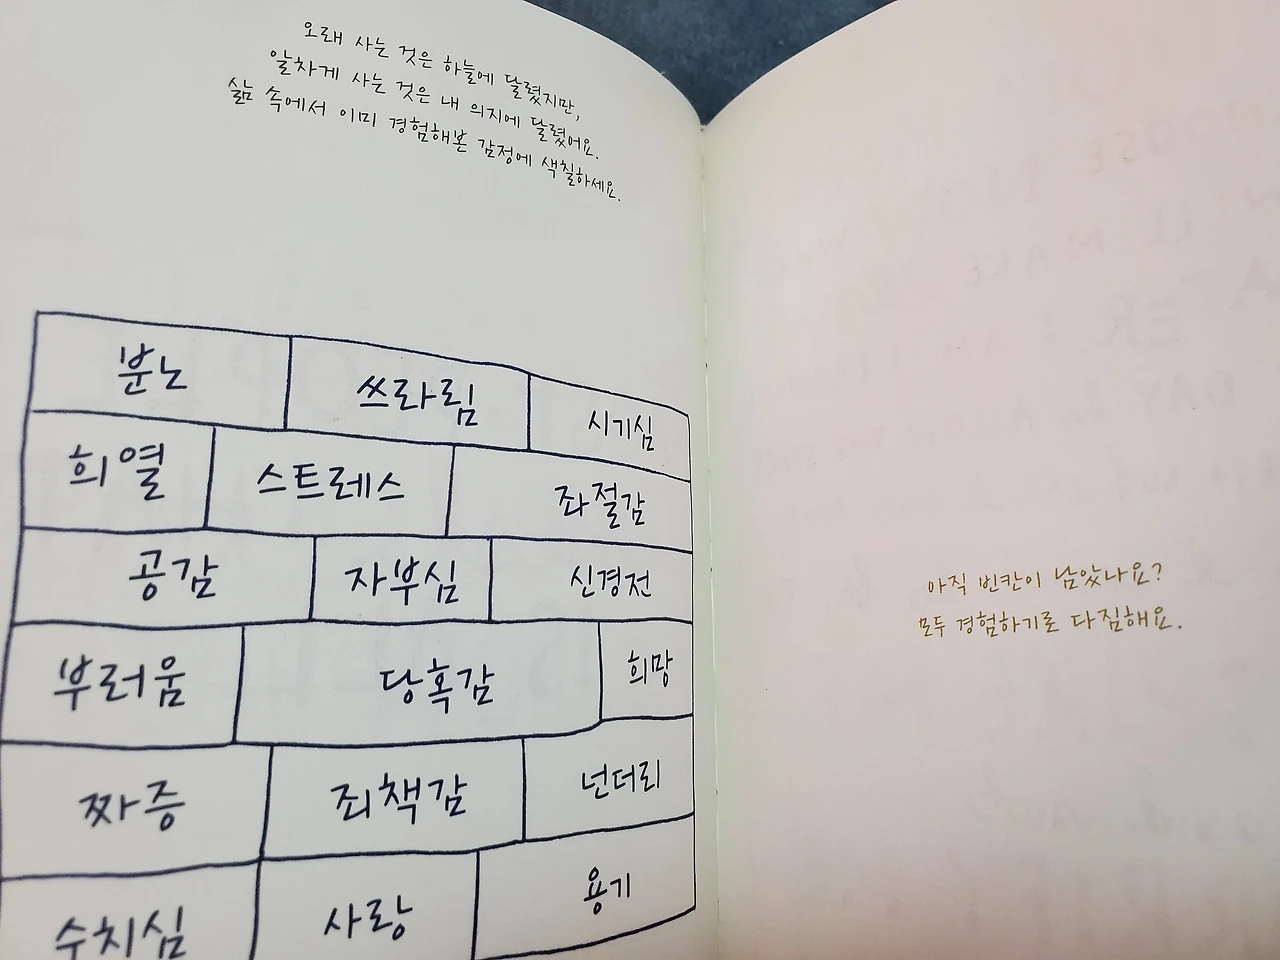 오래 사는 것은 하늘에 달렸지만,
알차게 사는 것은 내 의지에 달렸어요.
삶 속에서 이미 경험해본 감정에 색칠하세요.
분노 쓰라림 시기심
희열 스트레스 좌절감
공감 자부심 신경전
부러움 당혹감 희망
짜증 죄책감 넌더리
수치심 사랑 용기
아직 빈칸이 남았나요?
모두 경험하기로 다짐해요.